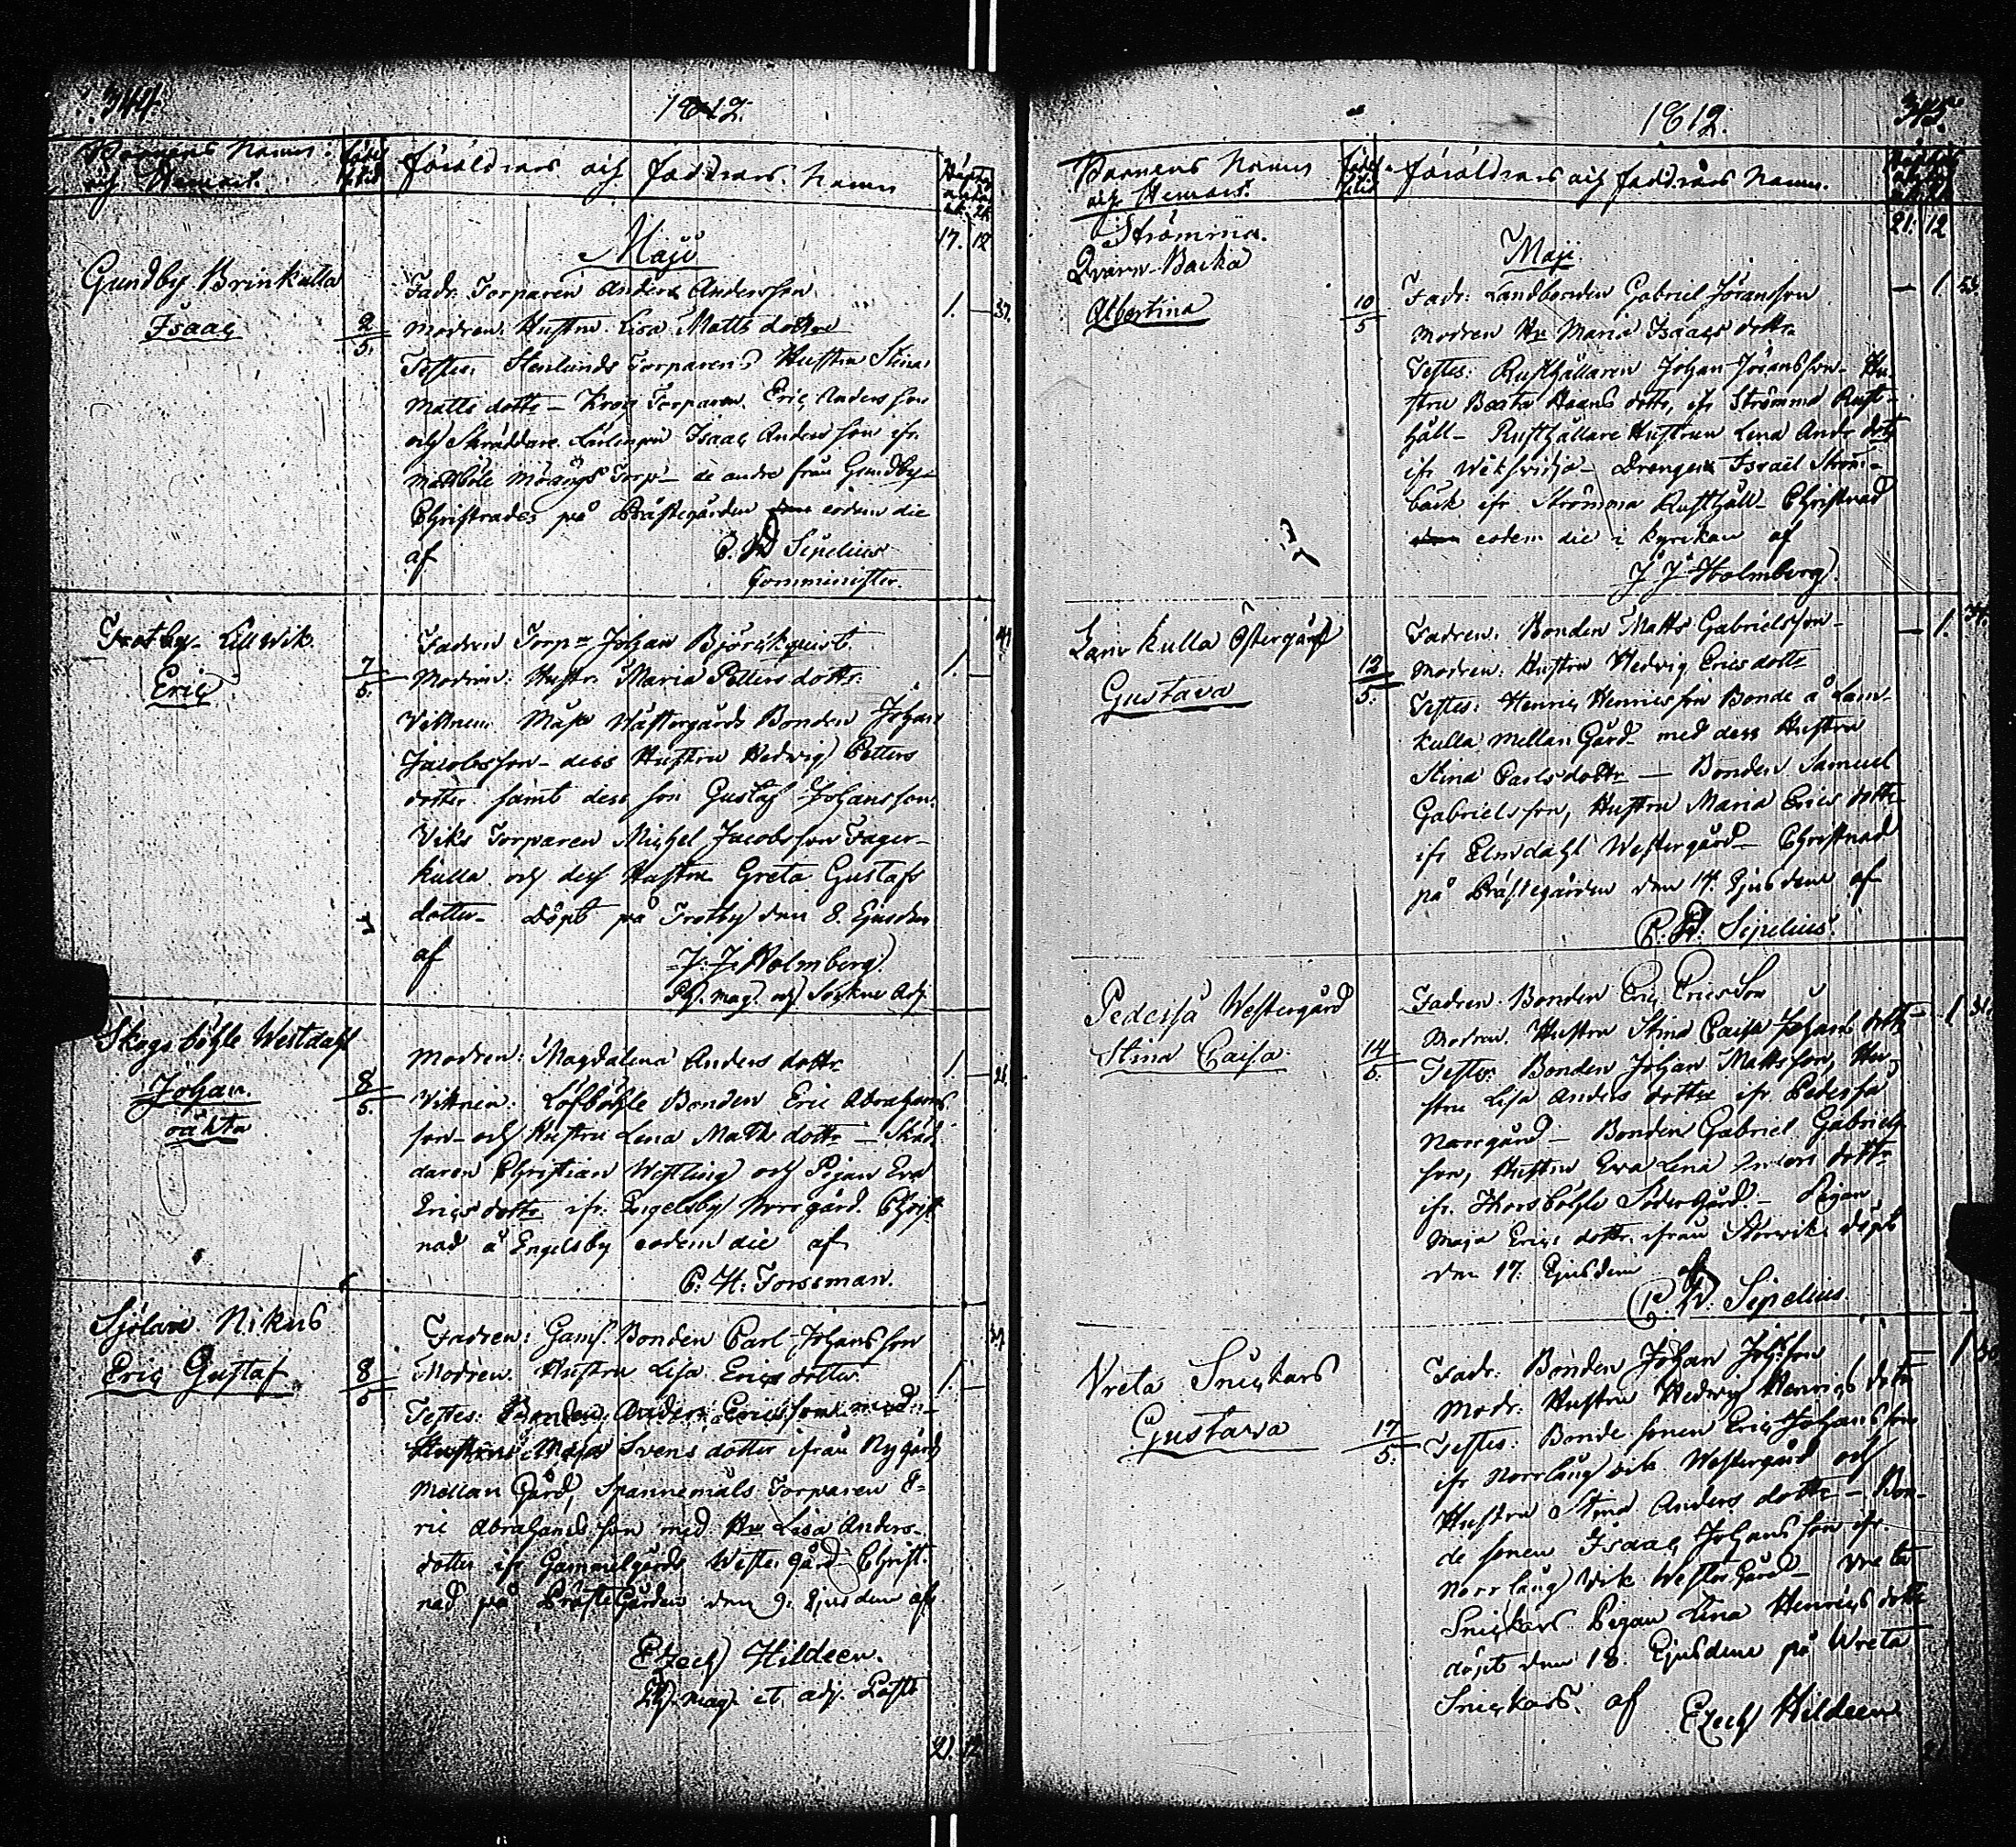 344.
1812.
Barnens Namn
och Hemort.
föräldrars och faddrars Namn
17. 12
Maji
Gundby Brinkulla
Isaac
2/5.
Fadr. Torparen Anders Andersson
Modren. Hustru Lisa Matts dotter
1. 37.
Testes: Stenlunds Torparens Hustru Stina
Matts dottr – Krog Torparen Eric Andersson
och Skräddare Lärlingen Isaac Andersson ifr.
Mattböle Torp – de andre från Gundby –
Christnades på Prästegården eodem die
af C. W. Sipelius
Comminister.
Trotby Lillwik.
Eric
7/5.
Fadren Torpn Johan Björkquist
Modren: Hustr. Maria Petters dottr.
1.
Vittnen: Wästergårds Bonden Johan
Jacobsson – dess Hustru Hedwig Petters
dotter samt dess son Gustaf Johansson.
Viks Torparen Michel Jacobsson Fager-
kulla och dess Hustru Greta Gustafs
dotter – Döpt på Trotby den 8. Ejusdem
af J. J. Holmberg.
Ph. Mag. och Sockne Adj.
Skogsböhle Westdahl
Johan.
oäkta
8/5.
Modren: Magdalena Anders dottr.
1. 26.
Vittnen: Löfböhle Bonden Eric Abrahams
son – och Hustru Lena Matts dottr – Skräd
daren Christian Westling och Pigan Eva
Erics dottr ifr. Engelsby Norrgård. Christ
nad å Engelsby eodem die af
C. H. Forssman.
Sjölax Nikus
Eric Gustaf
8/5
Fadren: Gamb. Bonden Carl Johansson
Modren. Hustru Lisa Erics dotter.
1.
Testes: Bonden Anders Ericsson med
Hustrun Maja Svens dotter ifrån Nygård
Mellan Gård, Spannemåls Torparen E-
ric Abrahamsson med Hu Lisa Anders-
dotter ifr Gammelgårds Wester gård Christ-
nad på Prästegården den 9. Ejusdem af
Ezech Hildeen.
Ph. mag. et. adj.
21. 12
1812.
345.
Barnens Namn
och Hemort.
föräldrars och faddrars Namn.
21. 12
Maji
Strömma.
Qvarn-Backa
Albertina
10/5
Fadr: Landbonden Gabriel Göransson
– 1.
Modren Hu Maria Isaacs dottr
Testes: Rusthållaren Johan Göransson – Hu-
stru Beata Hans dottr, ifr Strömma Rust-
håll – Rusthållare Hustrun Lena Andr dottr
ifr Wiksvidja – Drengen Israel Ström-
bäck ifr Strömma Rusthåll – Christnad
eodem die i Kyrckan af
J. J. Holmberg.
Lamkulla Östergård
Gustava
12/5.
Fadren: Bonden Matts Gabrielsson –
– 1.
Modren: Hustru Hedwig Ericsdottr
Testes: Henric Henricsson Bonde å Lam-
kulla Mellan Gård – med dess Hustru
Stina Carlsdottr – Bonden Samuel
Gabrielsson, Hustru Maria Erics dottr
ifr Elmdahl Westergård – Christnad
på Prästegården den 14. Ejusdem af
C. W. Sipelius.
Pederså Westergård
Stina Caisa.
14/5.
Fadren: Bonden Eric Ericsson
Modren. Hustru Stina Caisa Johans dottr
– 1
Testes: Bonden Johan Mattsson, Hu-
stru Lisa Anders dotter ifr Pederså
Norrgård – Bonden Gabriel Gabriels
son, Hustru Eva Lena dottr
ifr. Thorsböhle Södergård. – Pigan
Maja Erics dottr. ifrån Storwik, döpt
den 17. Ejusdem af
C. W. Sipelius
Vreta Snickars
Gustava
17/5.
Fadr: Bonden Johan Joh:sson
– 1
Modr: Hustru Hedwig Henrics dotr
Testes: Bonde sonen Eric Johansson
ifr Norrlångvik Westergård och
Hustru Stina Anders dottr – Bon-
de sonen Isaac Johansson ifr.
Norrlångvik Wester Gård – Vreta
Snickars Pigan Lena Henrics dottr
döpt den 18. Ejusdem på Wreta
Snickars. af Ezech Hildeen